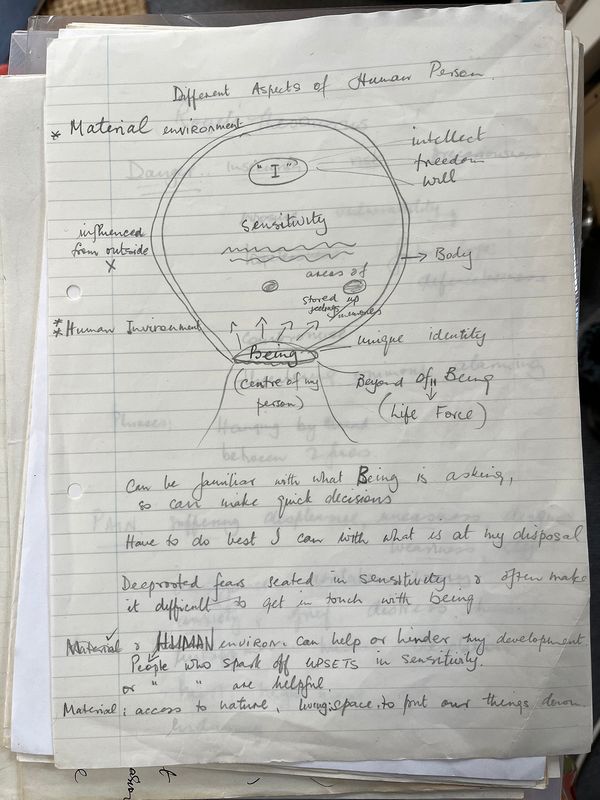 Different Aspects of Human Person.
* Material environment
"I"
intellect
freedom
will
sensitivity
influenced
from outside
x
→ Body
areas of
stored up
feelings memories
* Human Invironment
*
Being
unique identity
(centre of my
person)
Beyond of Being
(Life Force)
Can be familiar with what Being is asking,
so can make quick decisions
Have to do best I can with what is at my disposal
Deeprooted fears seated in sensitivity, & often make
it difficult to get in touch with being
Material & HUMAN environ. can help or hinder my development.
People who spark off UPSETS in sensitivity.
or " " are helpful.
Material: access to nature, living space, to put our things down